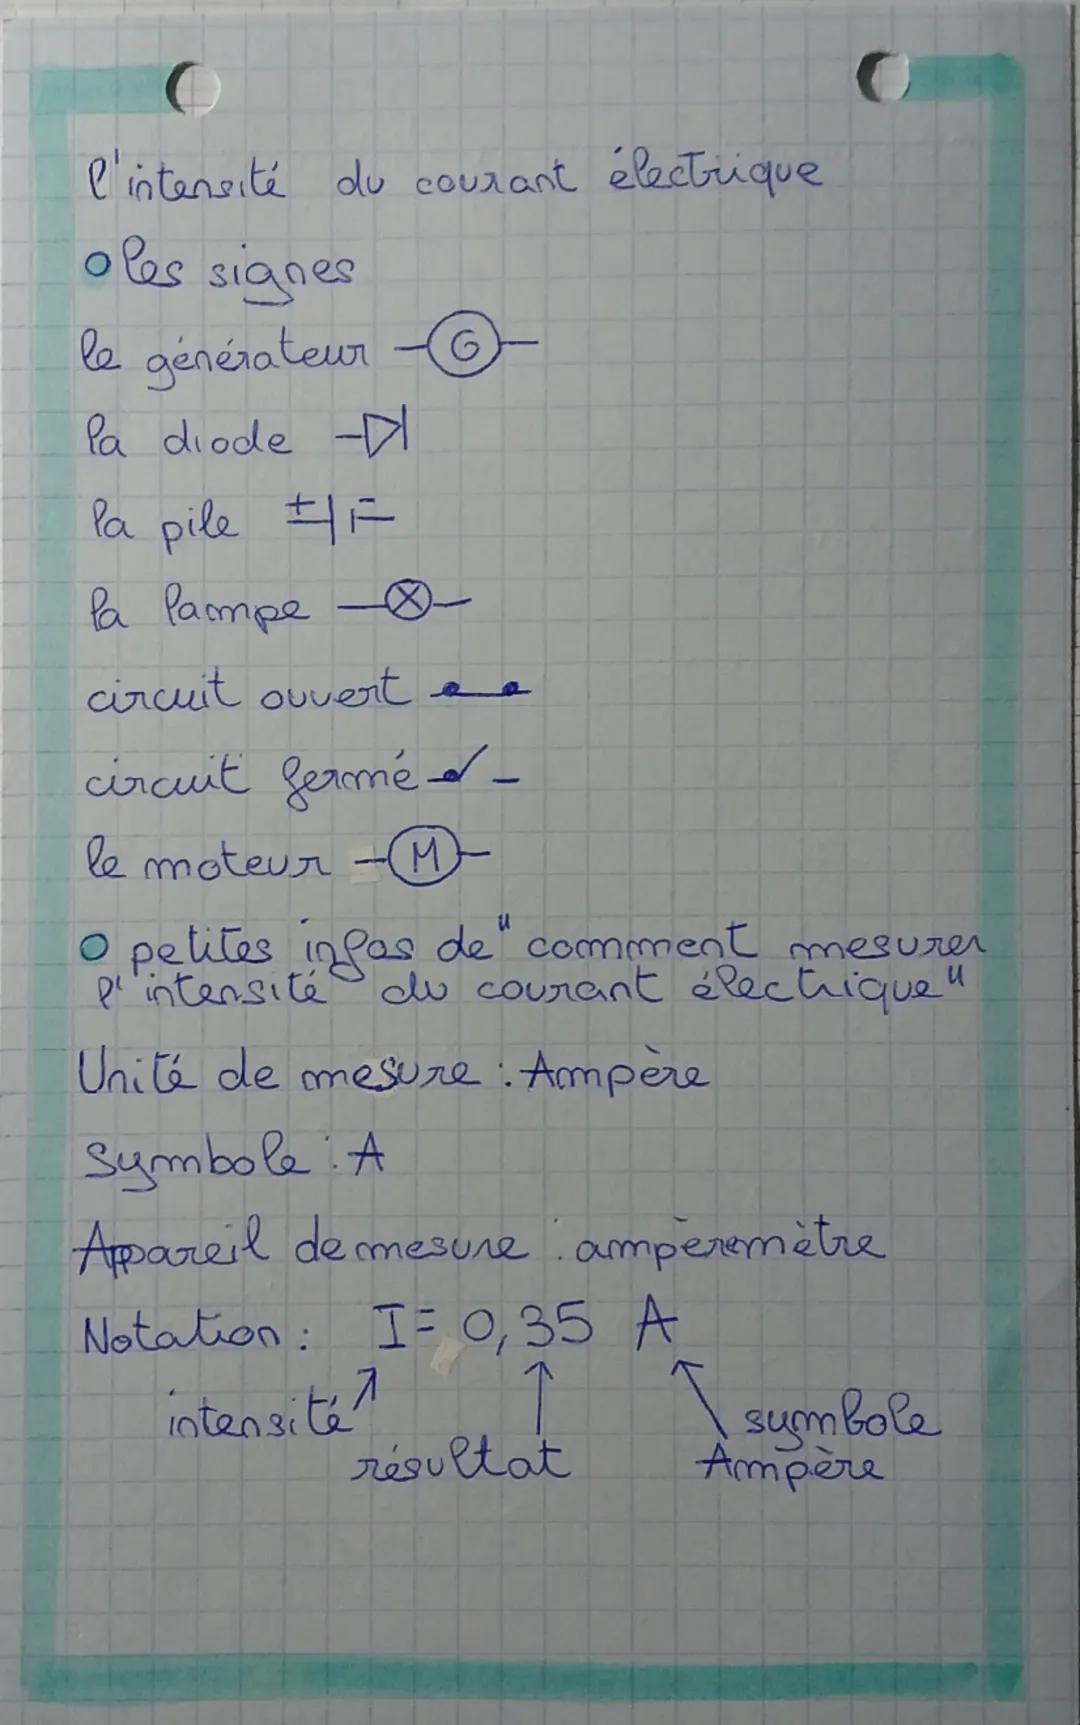 l'intensité du courant électrique
les signes
le générateur G
la diode
la pile + -
la lampe
circuit ouvert
circuit fermé
le moteur M
petites infos de "comment mesurer
l'intensité du courant électrique"
Unité de mesure : Ampère
Symbole : A
Appareil de mesure : ampèremètre
Notation : I = 0,35 A
intensité
symbole
résultat
Ampère